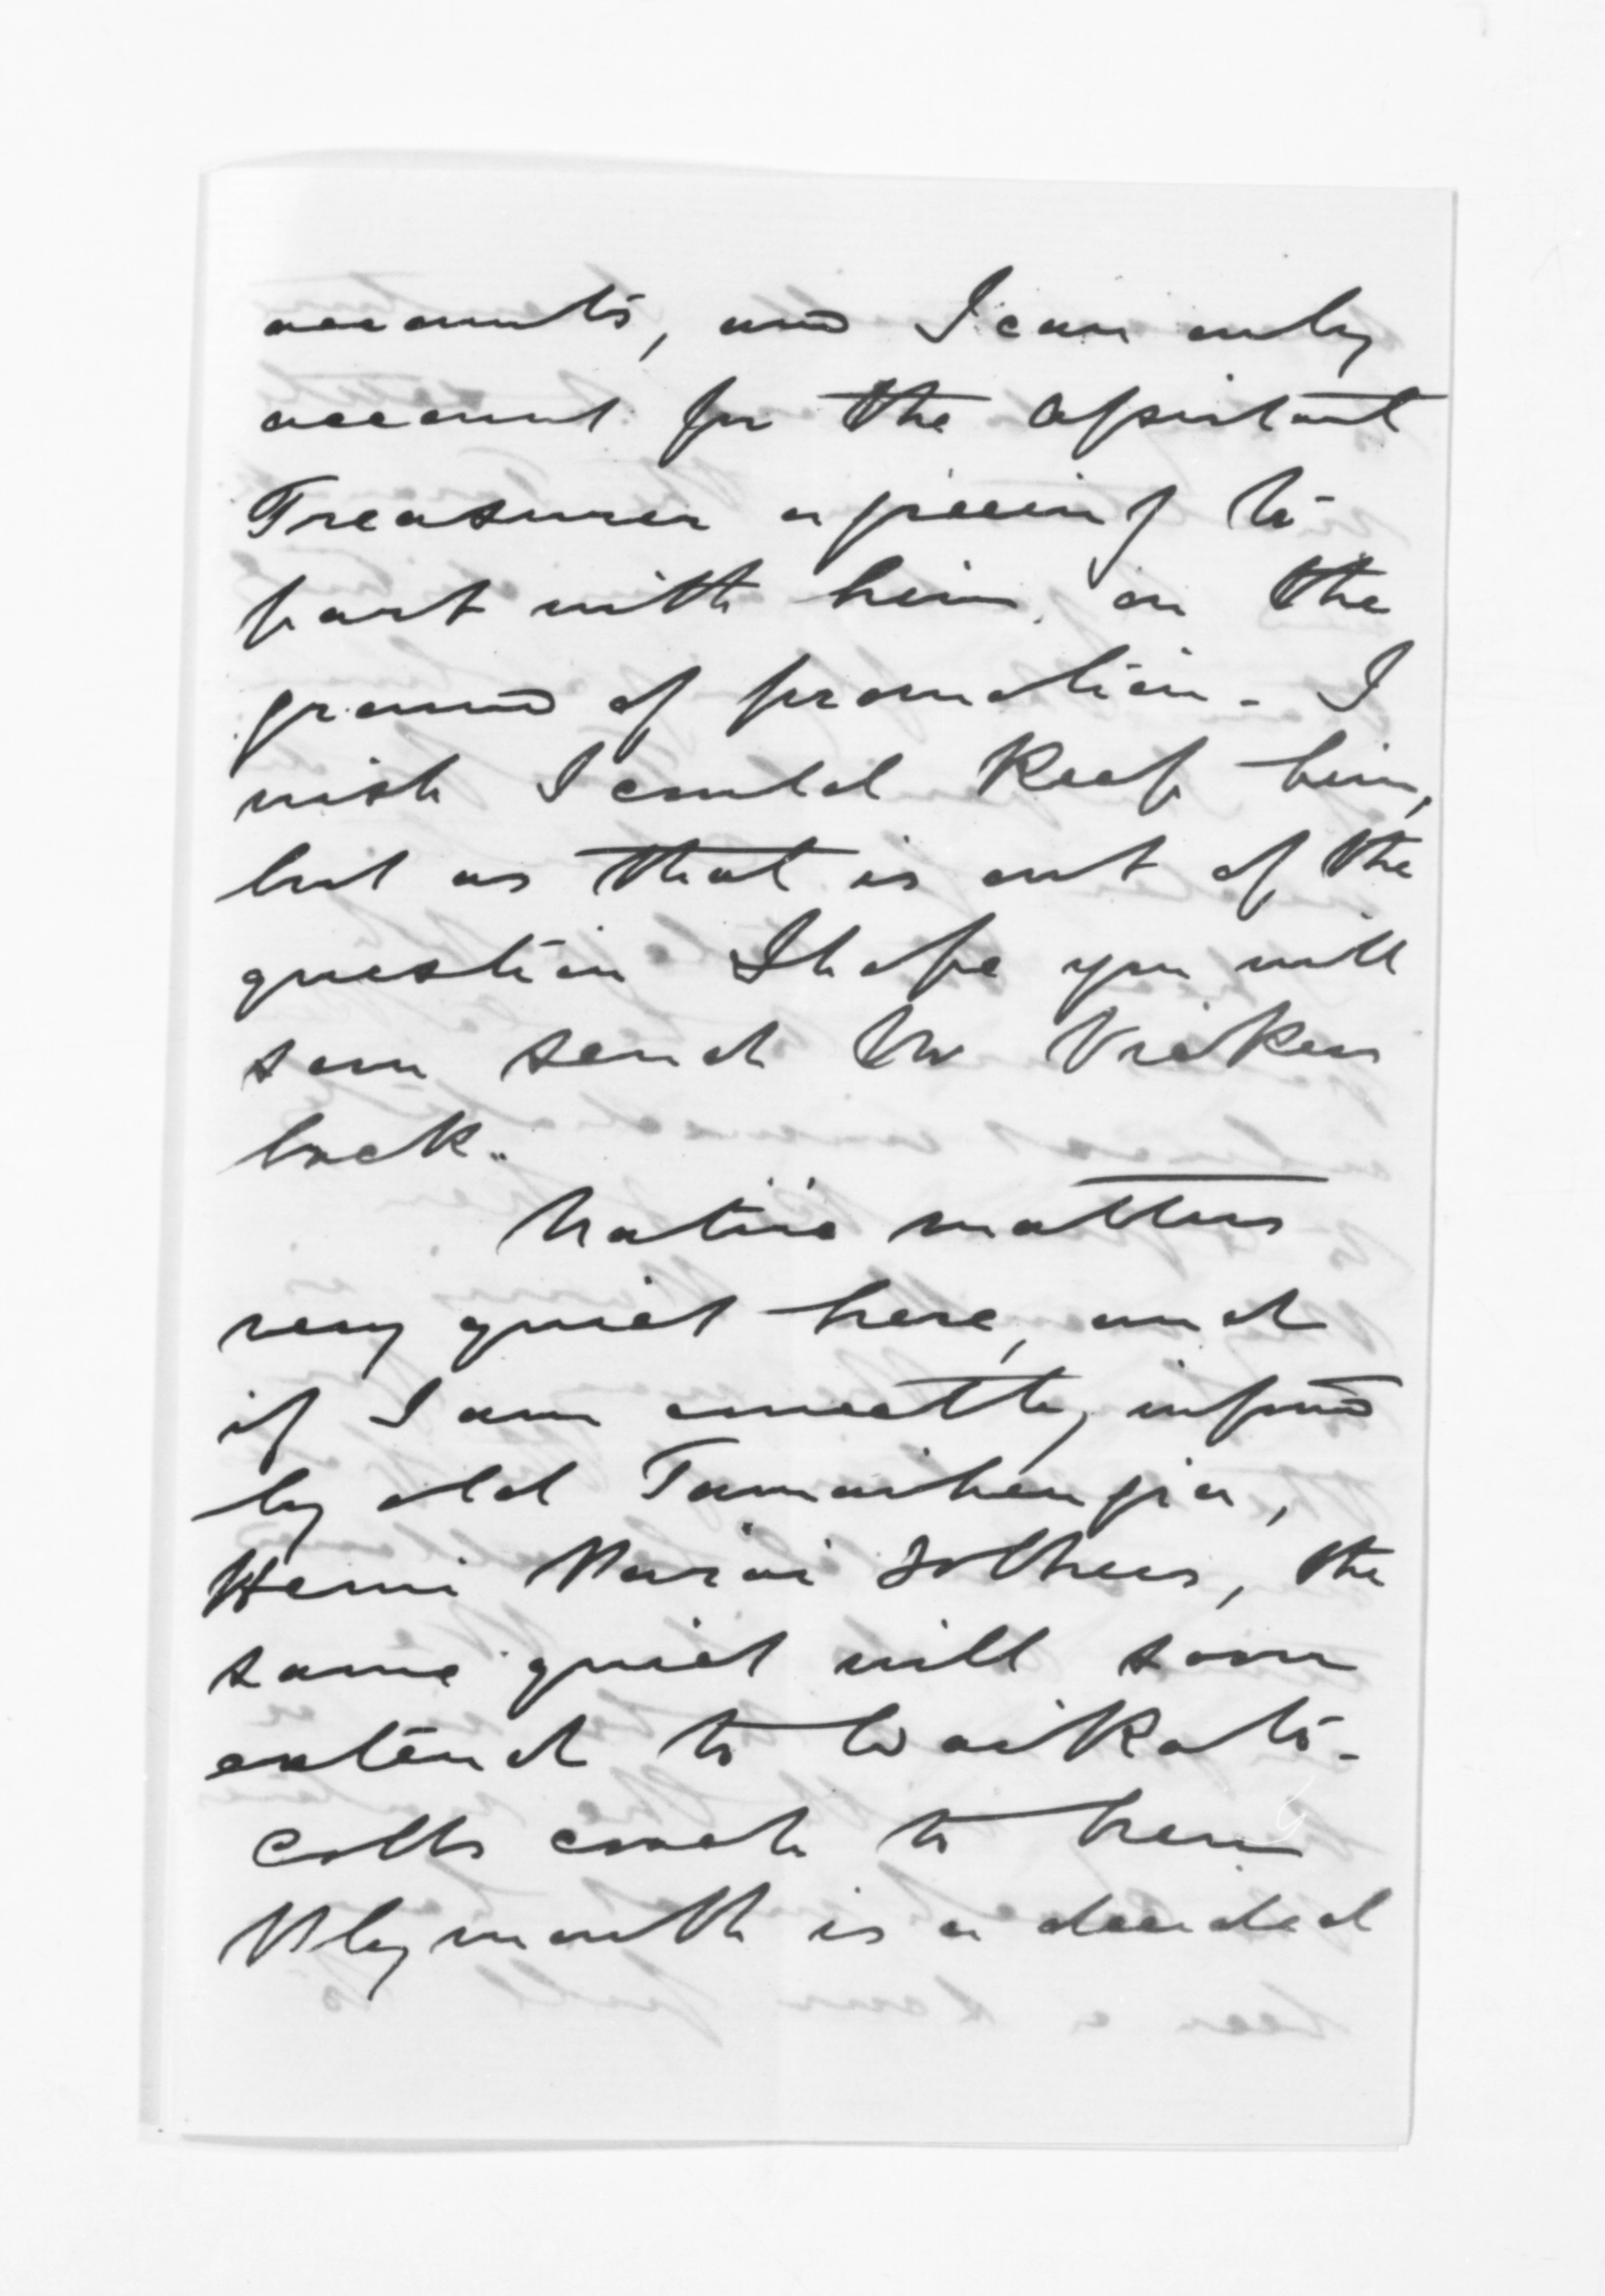 accounts, and I can only
account for the Assistant
Treasurer agreeing to
part with him, on the
ground of promotion. I
wish I could keep him,
but as that is out of the
question I hope you will
soon send Mr Vickers
back.
Native matters
very quiet here, and
if I am correctly infmd
by old Tamaihengia,
Hemi Parai & others, the
same quiet will soon
extend to Waikato.
Cobbs coach to New
Plymouth is a decided